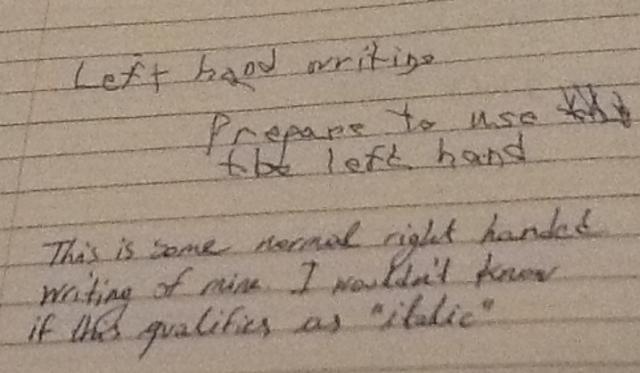 Left hand writing
Prepare to use
the left hand
This is some normal right handed
writing of mine. I wouldn't know
if this qualifies as "italic"